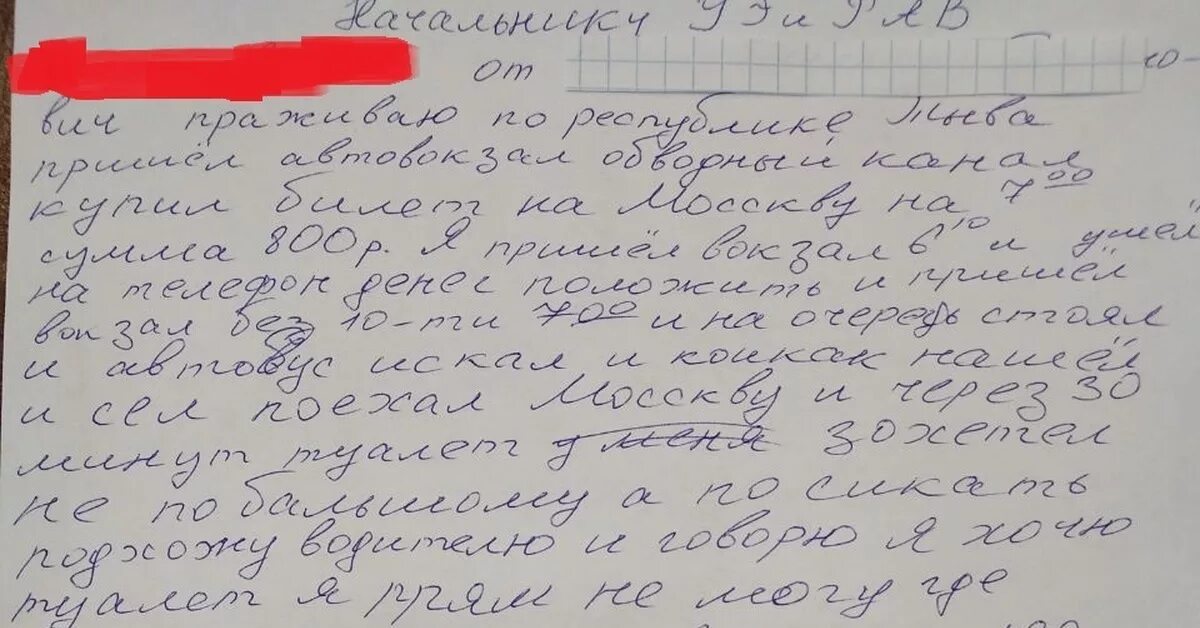 Начальнику УЭиРАВ
от ю-
вич праживаю по республике Тыва
пришёл автовокзал обводный канал
купил билет на Мосскву на 7 00
сумма 800 р. Я пришёл вокзал 6 10 и ушёл
на телефон денег положить и пришёл
вокзал без 10-ти 7 00 и на очередь стоял
и автовус искал и коикак нашёл
и сел поехал Мосскву и через 30
минут туалет у меня зохетел
не по балшому а по сикать
подхожу водителю и говорю я хочю
туалет я прям не могу где